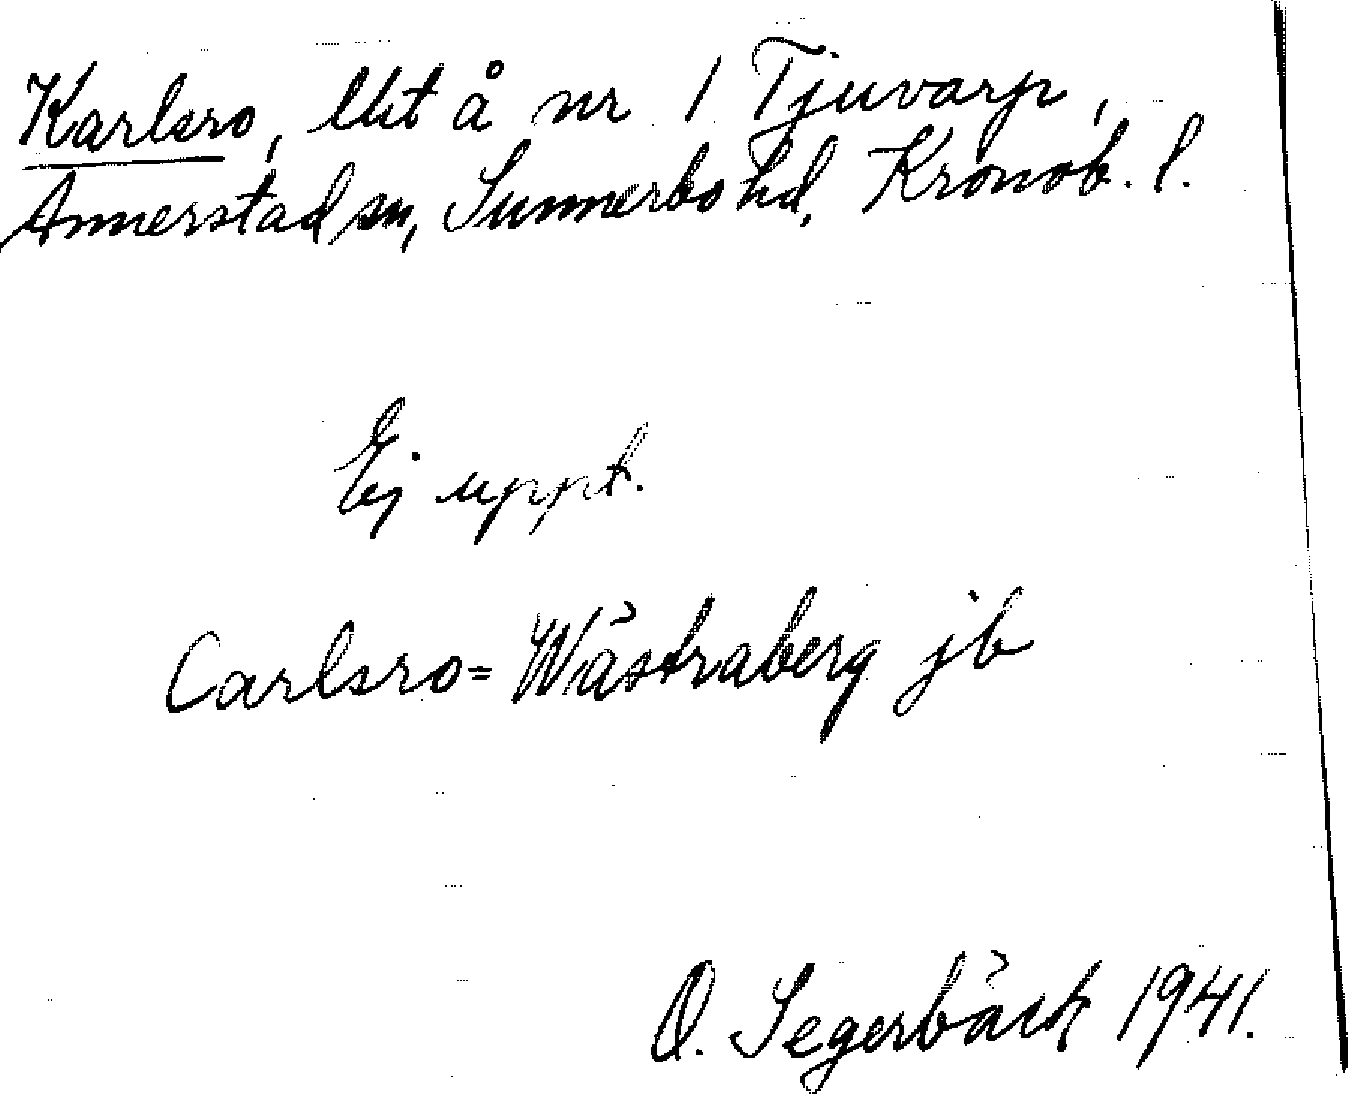 Karlsro, litt å nr 1 Tjuvarp,
Annerstad sn, Sunnerbo hd, Kronob. l.
Ej uppt.
Carlsro = Wästraberg jb
O. Segerbäck 1941.